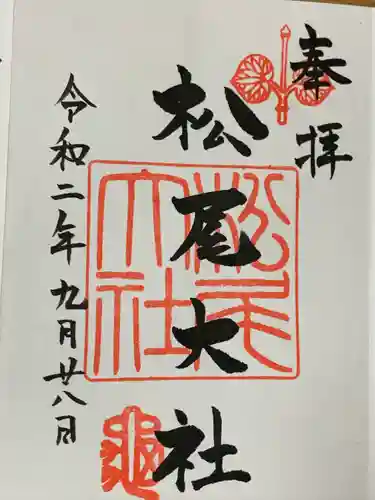 奉拝
松尾大社
松尾大社
令和二年九月廿八日